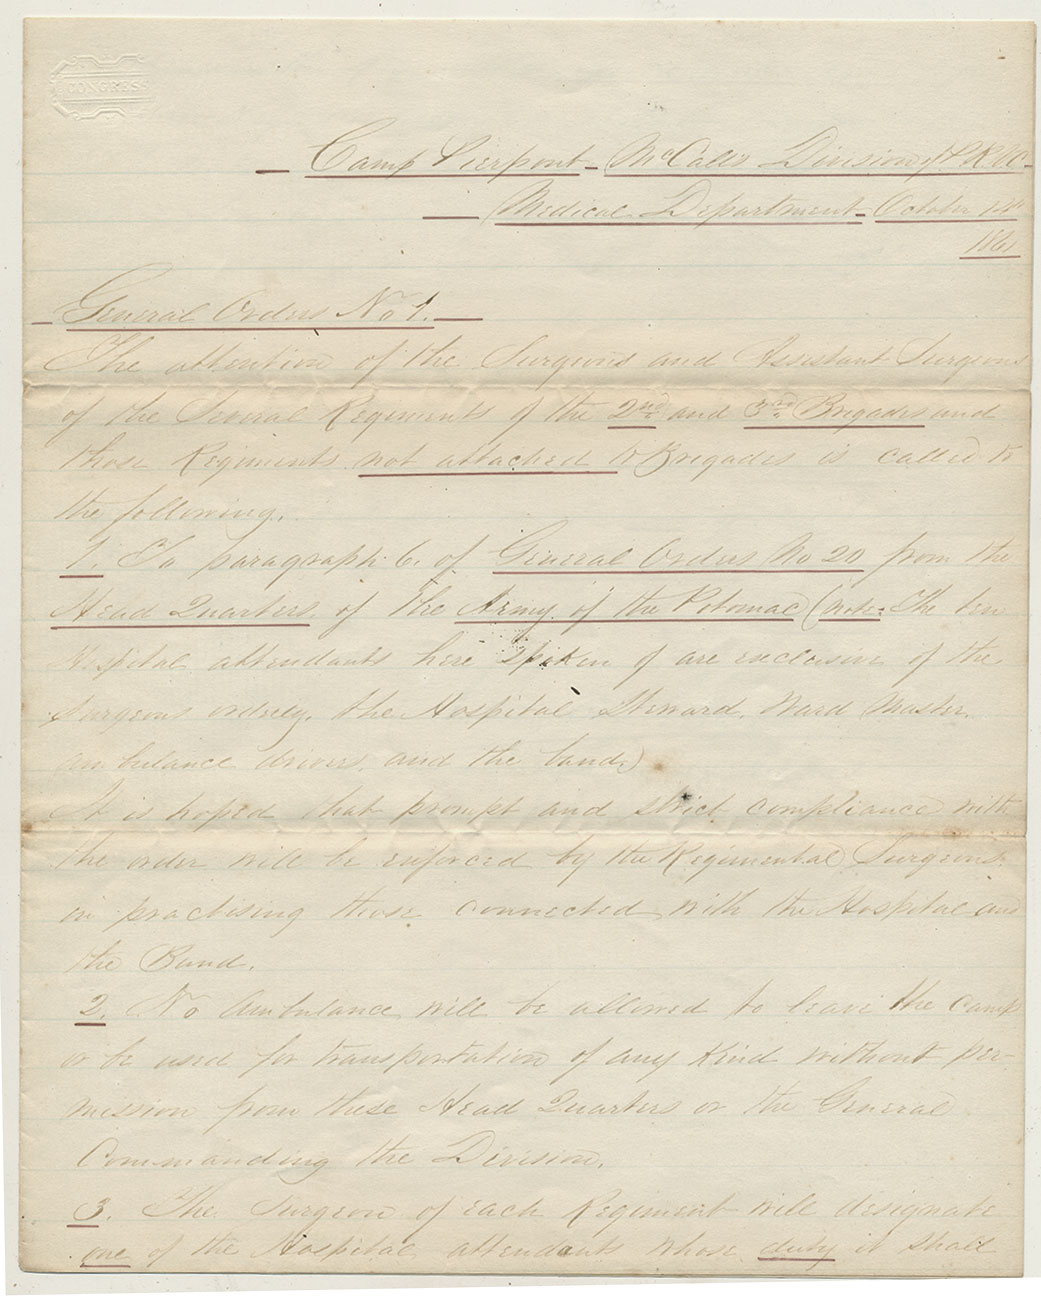 CONGRESS
Camp Pierpont - McCalls Division of P.R.V.C.
Medical Department - October 1st
1861
General Orders No 1.
The attention of the Surgeons and Assistant Surgeons
of the Several Regiments of the 2nd and 3rd Brigades and
those Regiments not attached to Brigades is called to
the following.
1. To paragraph 6. of General Orders No 20 from the
Head Quarters of the Army of the Potomac (note. The ten
Hospital attendants here spoken of are exclusive of the
Surgeons orderly, the Hospital Steward, Ward Master,
ambulance drivers and the band.)
It is hoped that prompt and strict compliance with
the order will be enforced by the Regimental Surgeons
in practising those connected with the Hospital and
the Band.
2. No Ambulance will be allowed to leave the camp
or be used for transportation of any kind without per-
mission from these Head Quarters or the General
Commanding the Division.
3. The Surgeon of each Regiment will designate
one of the Hospital attendants whose duty it shall